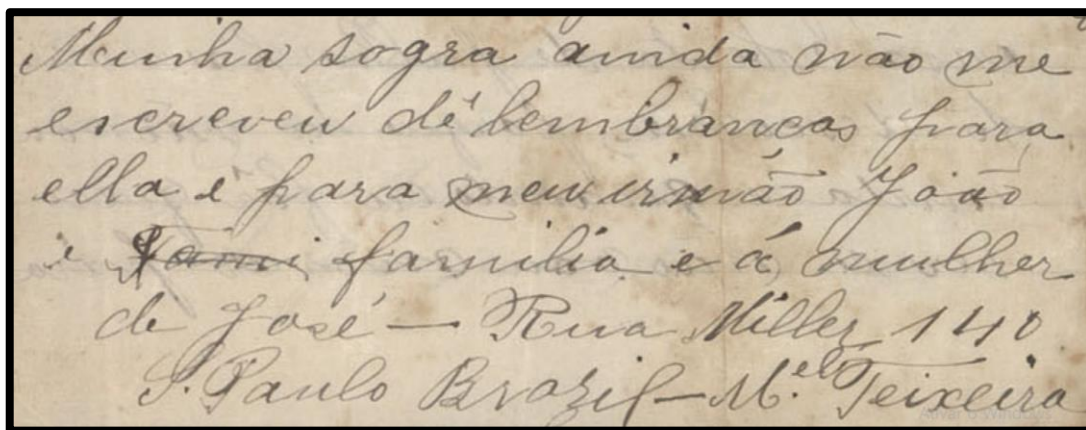 Minha sogra ainda não me
escreveu dê lembranças para
ella e para meu irmão João
e Fami familia e á mulher
de José — Rua Miller 140
S. Paulo Brazil — M.el Teixeira